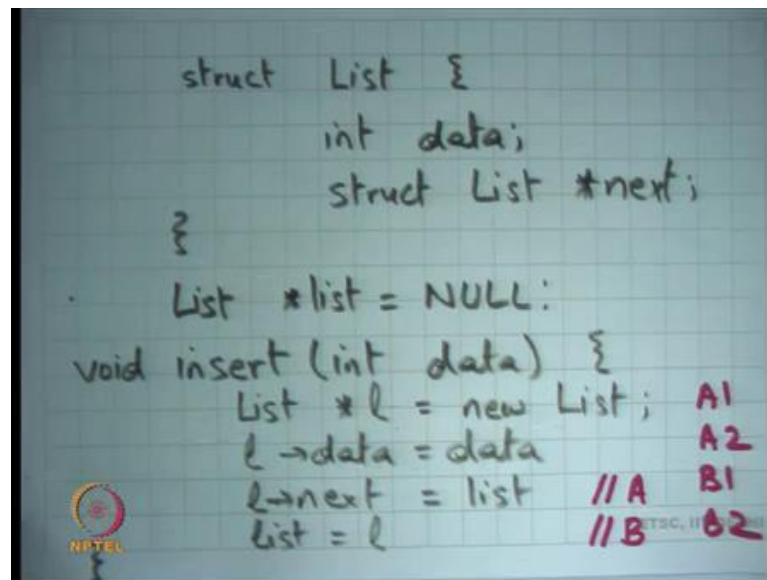 struct List {
int data;
struct List *next;
}
List *list = NULL:
void insert (int data) {
List *l = new List; A1
l→data = data A2
l→next = list //A B1
list = l //B B2
}
NPTEL
ETSC, II